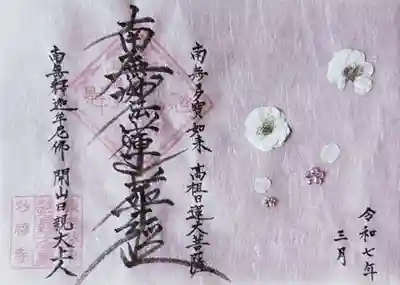 令和七年
三月
南無多寶如来 高祖日蓮大菩薩
南無妙法蓮華経
南無釈迦牟尼佛 開山日親大上人